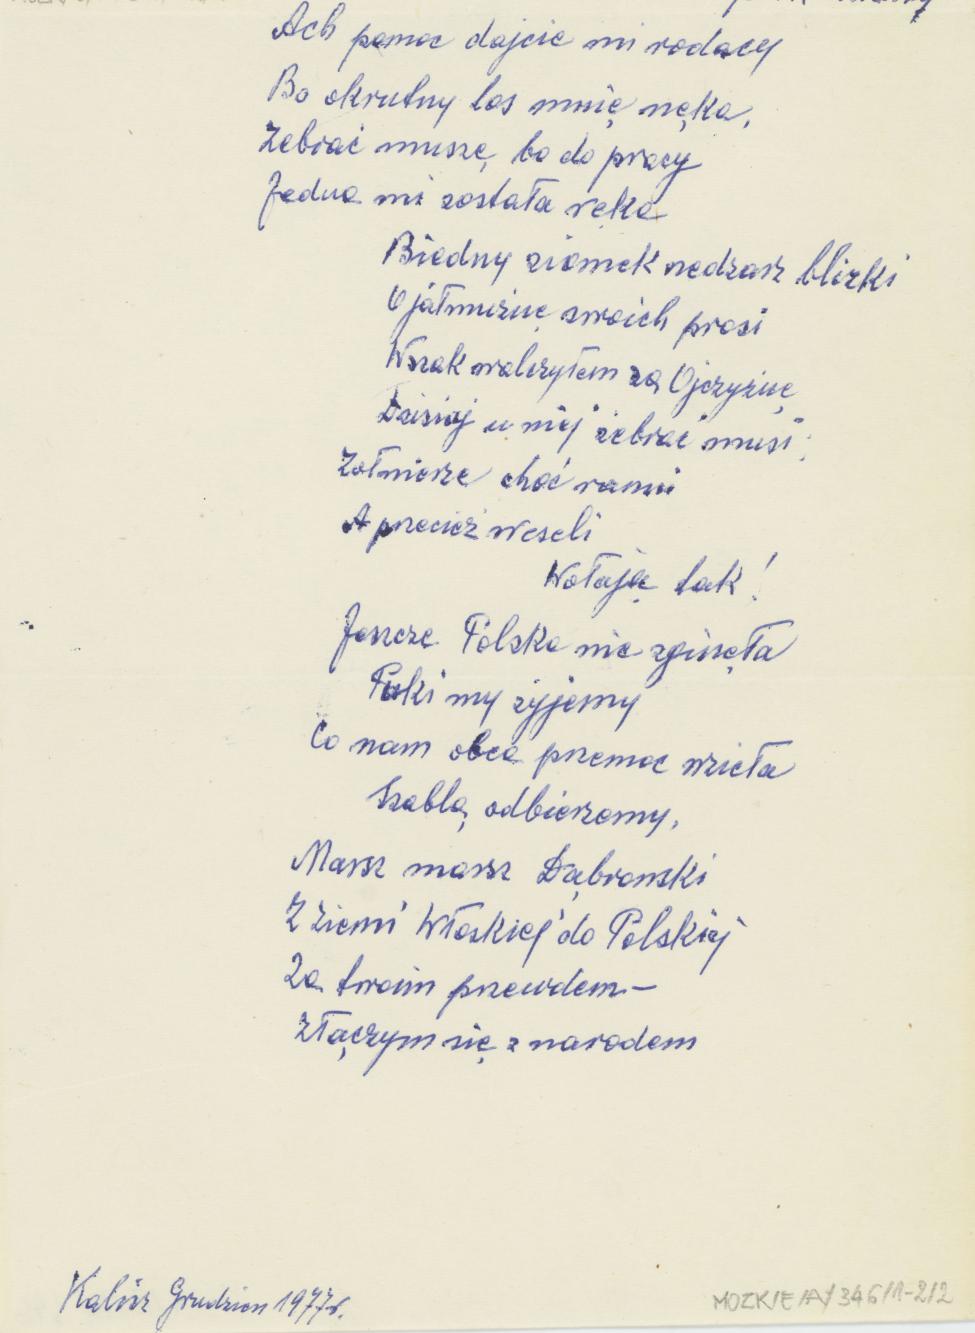 Ach pomoc dajcie mi rodacy
Bo okrutny los mnie nęka,
Żebrać muszę, bo do pracy
Jedna mi została ręka
Biedny ziomek nedzasz blizki
O jałmużnę swoich prosi
Wszak walczyłem za Ojczyznę
Dzisiaj u niej żebrać musi;
Żołnierze choć ranni
A przecież weseli
Wołają tak!
Jeszcze Polska nie zginęła
Puki my żyjemy
Co nam obca przemoc wzieła
Szablą odbierzemy,
Marsz marsz Dąbrowski
Z ziemi Włoskiej do Polskiej
Za twoim przewdem—
Złączym się z narodem
Kalisz Grudzien 1977r.
MOZK/E/A/346/1-2/2